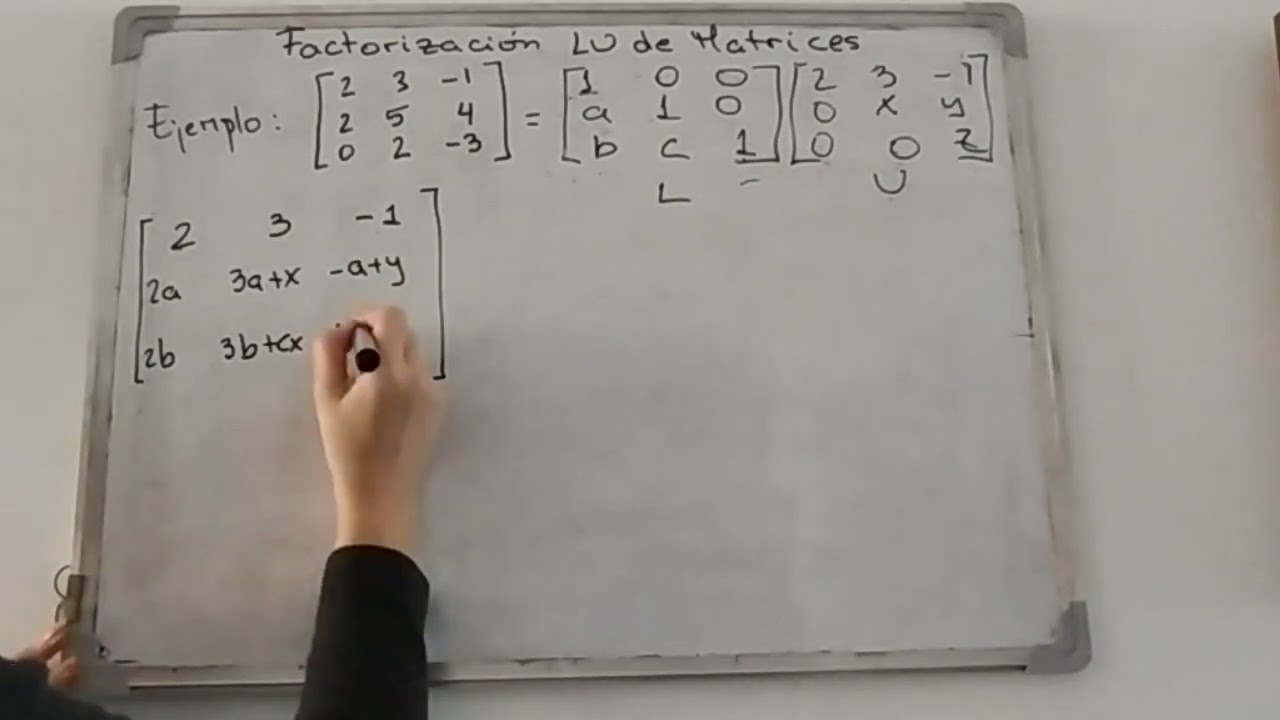 Factorización LU de Matrices
Ejemplo: [2 3 -1] = [1 0 0] [2 3 -1]
[2 5 4] [a 1 0] [0 x y]
[0 2 -3] [b c 1] [0 0 z]
L U
[2 3 -1]
[2a 3a+x -a+y]
[2b 3b+cx